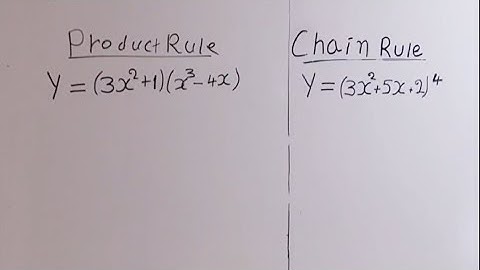 Product Rule
Y = (3x²+1)(x³-4x)
Chain Rule
Y = (3x²+5x+2)⁴